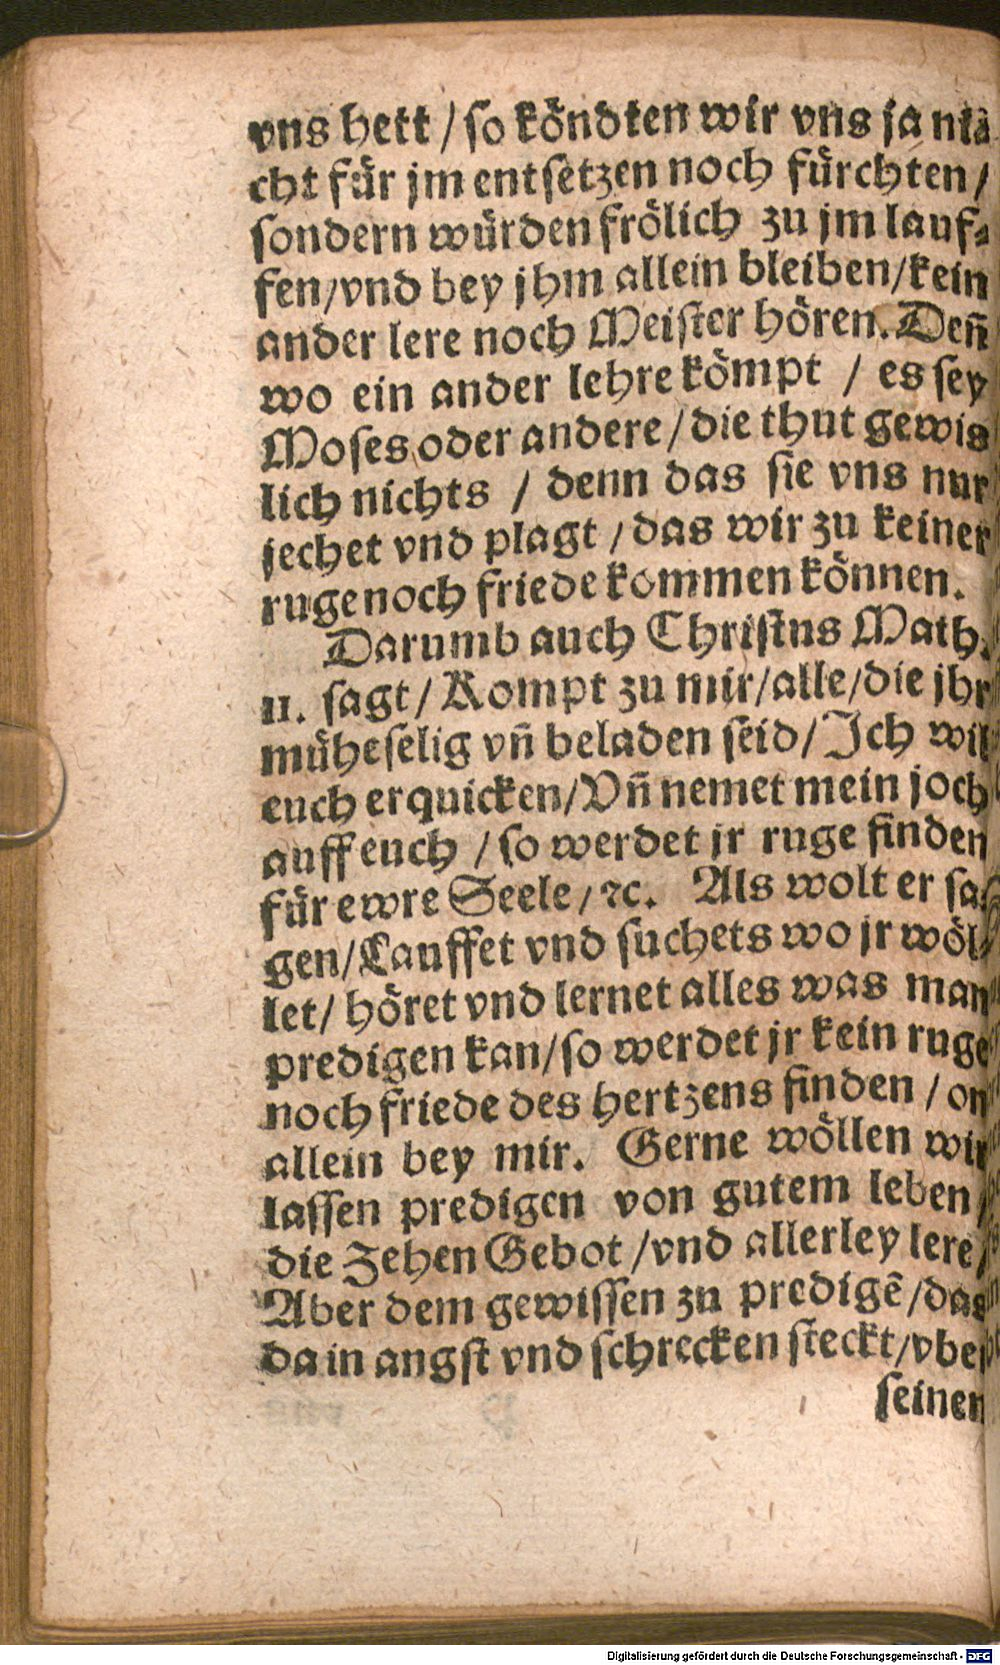 vns hett / so köndten wir vns ja ni⸗
cht für jm entsetzen noch fürchten /
sondern würden frölich zu jm lauf⸗
fen/vnd bey jhm allein bleiben/kein
ander lere noch Meister hören. Deñ
wo ein ander lehre kömpt / es sey
Moses oder andere / die thut gewis
lich nichts / denn das sie vns nur
jechet vnd plagt / das wir zu keiner
ruge noch friede kommen können.
Darumb auch Christus Math.
11. sagt / Kompt zu mir/alle/die jhr
müheselig vñ beladen seid/ Ich wil
euch erquicken/Vñ nemet mein joch
auff euch / so werdet jr ruge finden
für ewre Seele / ꝛc. Als wolt er sa⸗
gen/Lauffet vnd suchets wo jr wöl⸗
let/ höret vnd lernet alles was man
predigen kan/so werdet jr kein ruge
noch friede des hertzens finden / on
allein bey mir. Gerne wöllen wir
lassen predigen von gutem leben /
die Zehen Gebot / vnd allerley lere /
Aber dem gewissen zu predigẽ / das
da in angst vnd schrecken steckt/vber
seinen
Digitalisierung gefördert durch die Deutsche Forschungsgemeinschaft - DFG